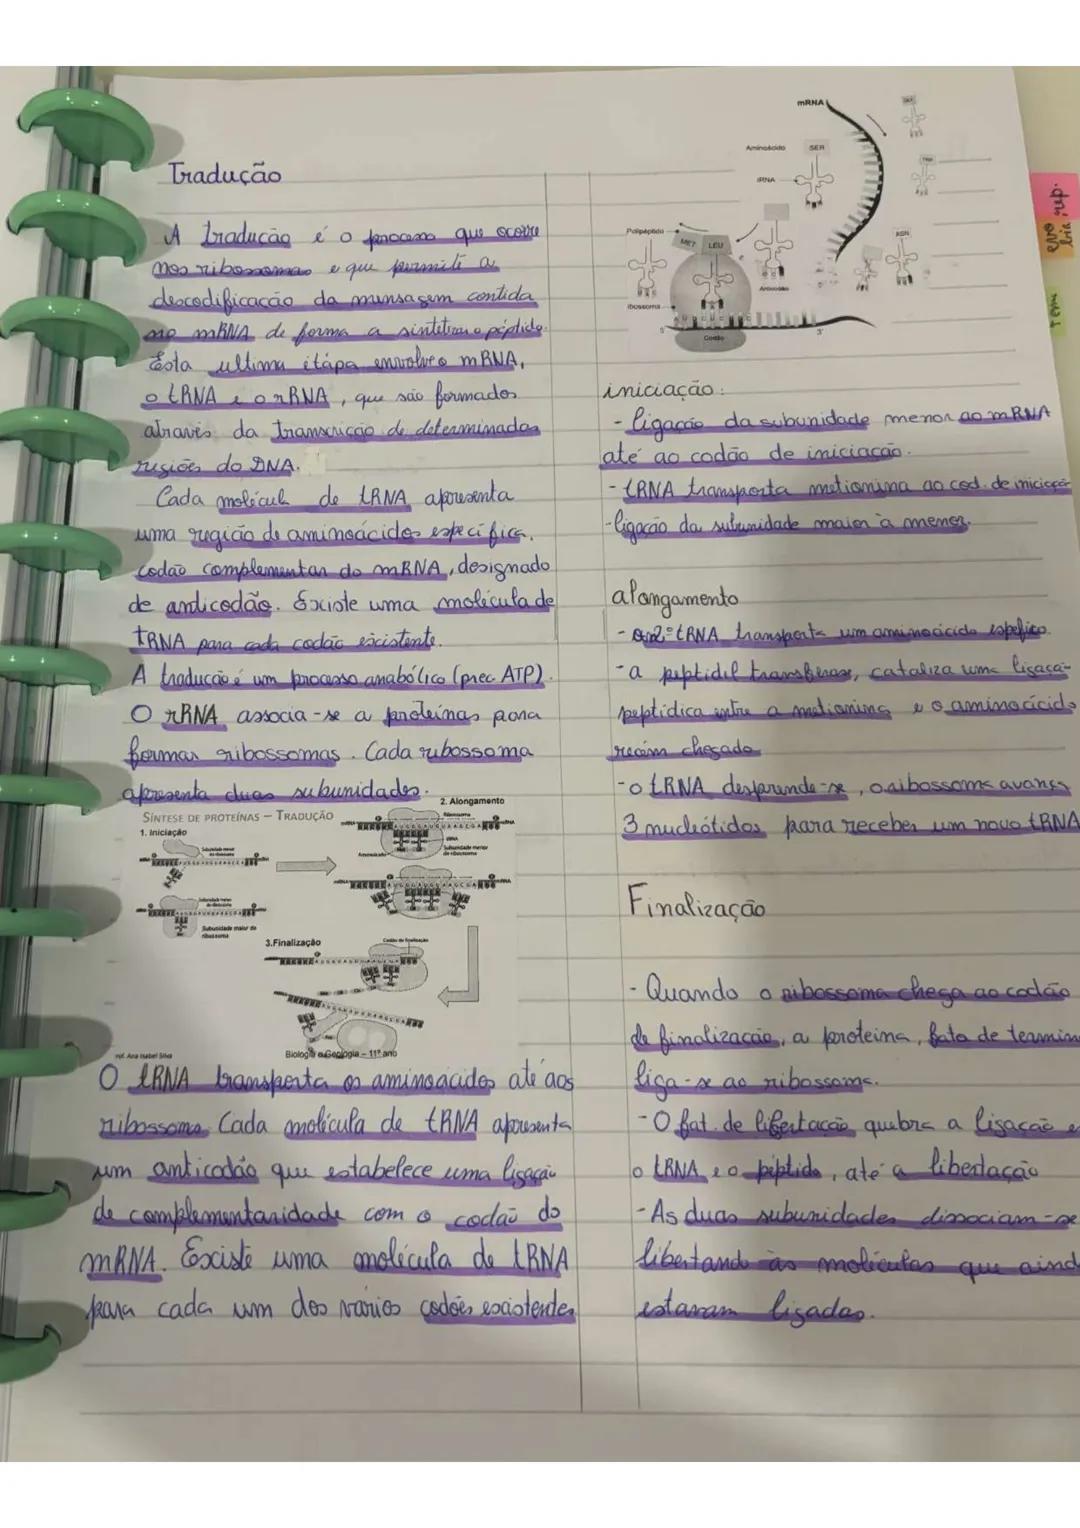 Tradução
A tradução é o processo que ocorre
nos ribossomas e que permite a
descodificação da mensagem contida
no mRNA de forma a sintetizar o péptido.
Esta ultima etapa envolve o mRNA,
o tRNA e o rRNA, que são formados
através da transcrição de determinadas
regiões do DNA.
Cada molécula de tRNA apresenta
uma região de aminoácidos específica,
codão complementar do mRNA, designado
de anticodão. Existe uma molécula de
tRNA para cada codão existente.
A tradução é um processo anabólico (prec. ATP).
O rRNA associa-se a proteínas para
formar ribossomas. Cada ribossoma
apresenta duas subunidades.
SÍNTESE DE PROTEÍNAS – TRADUÇÃO
1. Iniciação
2. Alongamento
Ribossoma
mRNA
tRNA
Aminoácido
Subunidade menor
do ribossoma
Subunidade maior do
ribossoma
3.Finalização
Codão de finalização
Prof. Ana Isabel Silva
Biologia e Geologia – 11º ano
O tRNA transporta os aminoácidos até aos
ribossoma. Cada molécula de tRNA apresenta
um anticodão que estabelece uma ligação
de complementaridade com o codão do
mRNA. Existe uma molécula de tRNA
para cada um dos vários codões existentes
mRNA
Aminoácido
SER
tRNA
Polipéptido
MET
LEU
ASN
Anticodão
Ribossoma
5'
3'
Codão
iniciação:
- ligação da subunidade menor ao mRNA
até ao codão de iniciação.
- tRNA transporta metionina ao cod. de iniciação
- ligação da subunidade maior à menor.
alongamento
- tRNA transporta um aminoácido
- a peptidil transferase, cataliza uma ligação
peptídica entre a metionina e o aminoácido
recém chegado
- o tRNA desprende-se, o ribossoma avança
3 nucleótidos para receber um novo tRNA
Finalização
- Quando o ribossoma chega ao codão
de finalização, a proteína, fato de termin
liga-se ao ribossoma.
- O fat. de libertação quebra a ligação e
o tRNA e o péptido, até a libertação
- As duas subunidades dissociam-se
libertando as moléculas que aind
estavam ligadas.